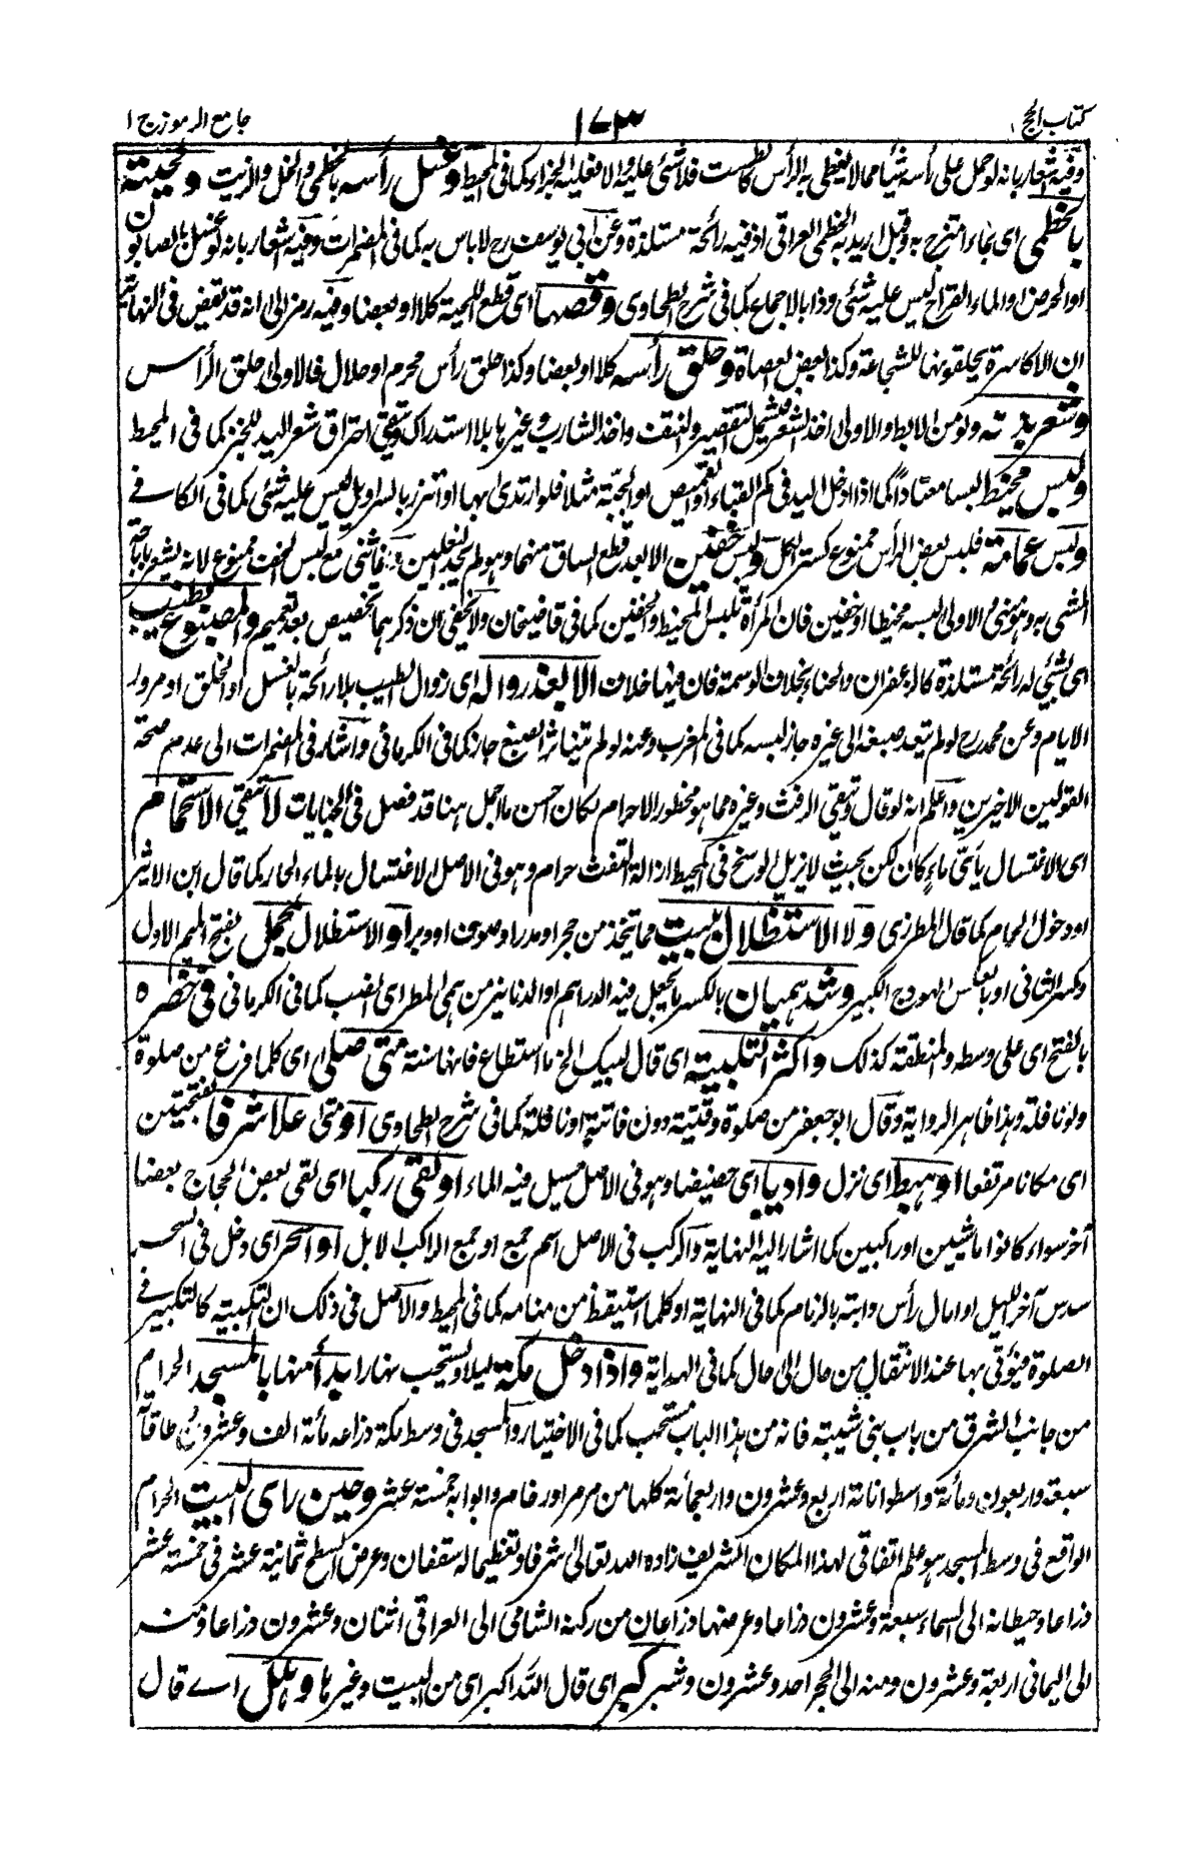 كتاب الحج ١٧٣ جامع الرموز ج ١
وفيه اشعار بانه لو حمل على رأسه شيئا مما لا يغطى به الرأس كالطست فلا شئ عليه والا فعليه الجزاء كما فى المحيط وغسل رأسه بالخطمى والخل والزيت ولحيته
بالخطمى اى بماء امتزج به وقيل اريد به الخطمى العراقى اذ فيه رائحة مستلذة وعن ابى يوسف رح لا باس به كما فى المضمرات وفيه اشعار بانه لو غسل بالصابون
او الحرض والماء القراح ليس عليه شئ وذا بالاجماع كما فى شرح الطحاوى وقصها اى قطع اللحية كلا او بعضا وفيه رمز الى انه قد نقيض فى النهاية
ان الاكاسرة يحلقونها للشجاعة وكذا بعض العصاة وحلق رأسه كلا او بعضا وكذا حلق رأس محرم او حلال فالاولى حلق الرأس
وشعر بدنه ولو من الابط والاولى اخذ الشعر فيشمل التقصير والنتف واخذ الشارب وغيرها بلا استدراك ويتقى احتراق شعر اليد للخبز كما فى المحيط
ولبس مخيط لبسا معتادا كما اذا ادخل اليد فى كم القباء او القميص او الجبة مثلا فلو ارتدى بها او اتزر بالسراويل ليس عليه شئ كما فى الكافے
ولبس عمامة فلبس بعض الرأس ممنوع كستر الكل ولبس خفين الا بعد قطع الساق منهما وهو لم يجد النعلين فما ثنى مع لبس الخف ممنوع لانه يشعر باباحة
المشى به وهو منهى والاولى لبسه مخيطا او خفين فان المرأة تلبس المخيط والخفين كما فى قاضيخان ولا يخفى ان ذكرهما تخصيص بعد تعميم والمصبوغ بطيب
اى بشئ له رائحة مستلذة كالزعفران والحناء بخلاف الوسمة فان فيها خلاف الا بعد زواله اى زوال الطيب بلا رائحة بالغسل او الخلق او مرور
الايام وعن محمد رح لو لم يتعد صبغه الى غيره جاز لبسه كما فى المغرب وعنه لو لم يتناثر الصبغ جاز كما فى الكرمانى واشار فى المضمرات الى عدم صحة
القولين الاخيرين واعلم انه لو قال ويتقى الرفث وغيره مما هو محظور الاحرام لكان احسن ما اجمل هنا قد فصل فى الجنايات لا يتقى الاستحمام
اى الاغتسال باى ماء كان لكن بحيث لا يزيل الوسخ فى المحيط ازالة التفث حرام وهو فى الاصل الاغتسال بالماء الحار كما قال ابن الاثير
او دخول الحمام كما قال المطرزى ولا الاستظلال ببيت مما يتخذ من حجر او مدر او صوف او وبر او الاستظلال بمحمل بفتح الميم الاول
وكسر الثانى او بالعكس الهودج الكبير وشد هميان بالكسر ما يجعل فيه الدراهم او الدنانير من همى المطر اى انصب كما فى الكرمانى فى خصره
بالفتح اى على وسطه والمنطقة كذلك واكثر التلبية اى قال لبيك الخ ما استطاع فانها سنة متى صلى اى كلما فرغ من صلوة
ولو نافلة وهذا ظاهر الرواية وقال ابو جعفر من صلوة وقتية دون فائتة او نافلة كما فى شرح الطحاوى او متى علا شرفا بفتحتين
اى مكانا مرتفعا او هبط اى نزل واديا اى حضيضا وهو فى الاصل مسيل فيه الماء او لقى ركبا اى لقى بعض الحجاج بعضا
آخر سواء كانوا ماشيين او راكبين كما اشار اليه النهاية والركب فى الاصل اسم جمع او جمع الراكب الابل او اسحر اى دخل فى السحر
سدس آخر الليل او امال رأس دابته بالزمام كما فى النهاية او كلما استيقظ من منامه كما فى المحيط والاصل فى ذلك ان التلبية كالتكبير فے
الصلوة فيؤتى بها عند الانتقال من حال الى حال كما فى الهداية واذا دخل مكة ليلا ويستحب نهارا بدأ منها بالمسجد الحرام
من جانب الشرق من باب بنى شيبة فانه من هذا الباب مستحب كما فى الاختيار والمسجد فى وسط مكة ذراعه مائة الف وعشرون طاقاته
سبعة واربعون ومائة واسطواناتة اربع وعشرون واربعمائة كلها من مرمر اور خام وابوابه خمسة عشر وحين راى البيت الحرام
الواقع فى وسط المسجد هو علم اتفاقى لهذا المكان الشريف زاده الله تعالى شرفا وتعظيما له سقفان وعرض السطح ثمانية عشر فى خمسة عشر
ذراعا وحيطانه الى السماء سبعة وعشرون ذراعا وعرضها ذراعان من ركنه الشامى الى العراقى اثنان وعشرون ذراعا ومنه
الى اليمانى اربعة وعشرون ومنه الى الحجر احد وعشرون وشبر كبر اى قال الله اكبر اى من البيت وغيرها وهلل اے قال